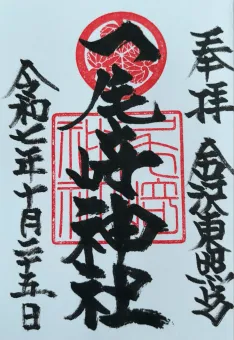 奉拝
金沢東照宮
尾崎神社
令和七年十月二十五日